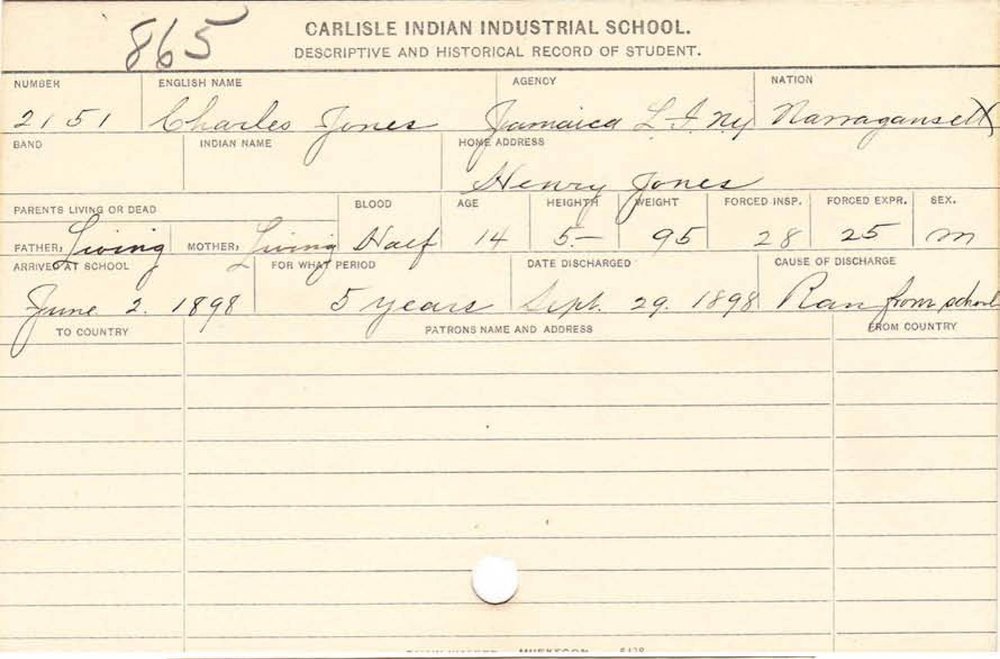 865
CARLISLE INDIAN INDUSTRIAL SCHOOL.
DESCRIPTIVE AND HISTORICAL RECORD OF STUDENT.
NUMBER ENGLISH NAME AGENCY NATION
2151 Charles Jones Jamaica L. I. Ny Narragansett
BAND INDIAN NAME HOME ADDRESS
Henry Jones
PARENTS LIVING OR DEAD BLOOD AGE HEIGHTH WEIGHT FORCED INSP. FORCED EXPR. SEX.
FATHER, Living MOTHER, Living Half 14 5- 95 28 25 m
ARRIVED AT SCHOOL FOR WHAT PERIOD DATE DISCHARGED CAUSE OF DISCHARGE
June 2. 1898 5 years Sept. 29. 1898 Ran from school
TO COUNTRY PATRONS NAME AND ADDRESS FROM COUNTRY